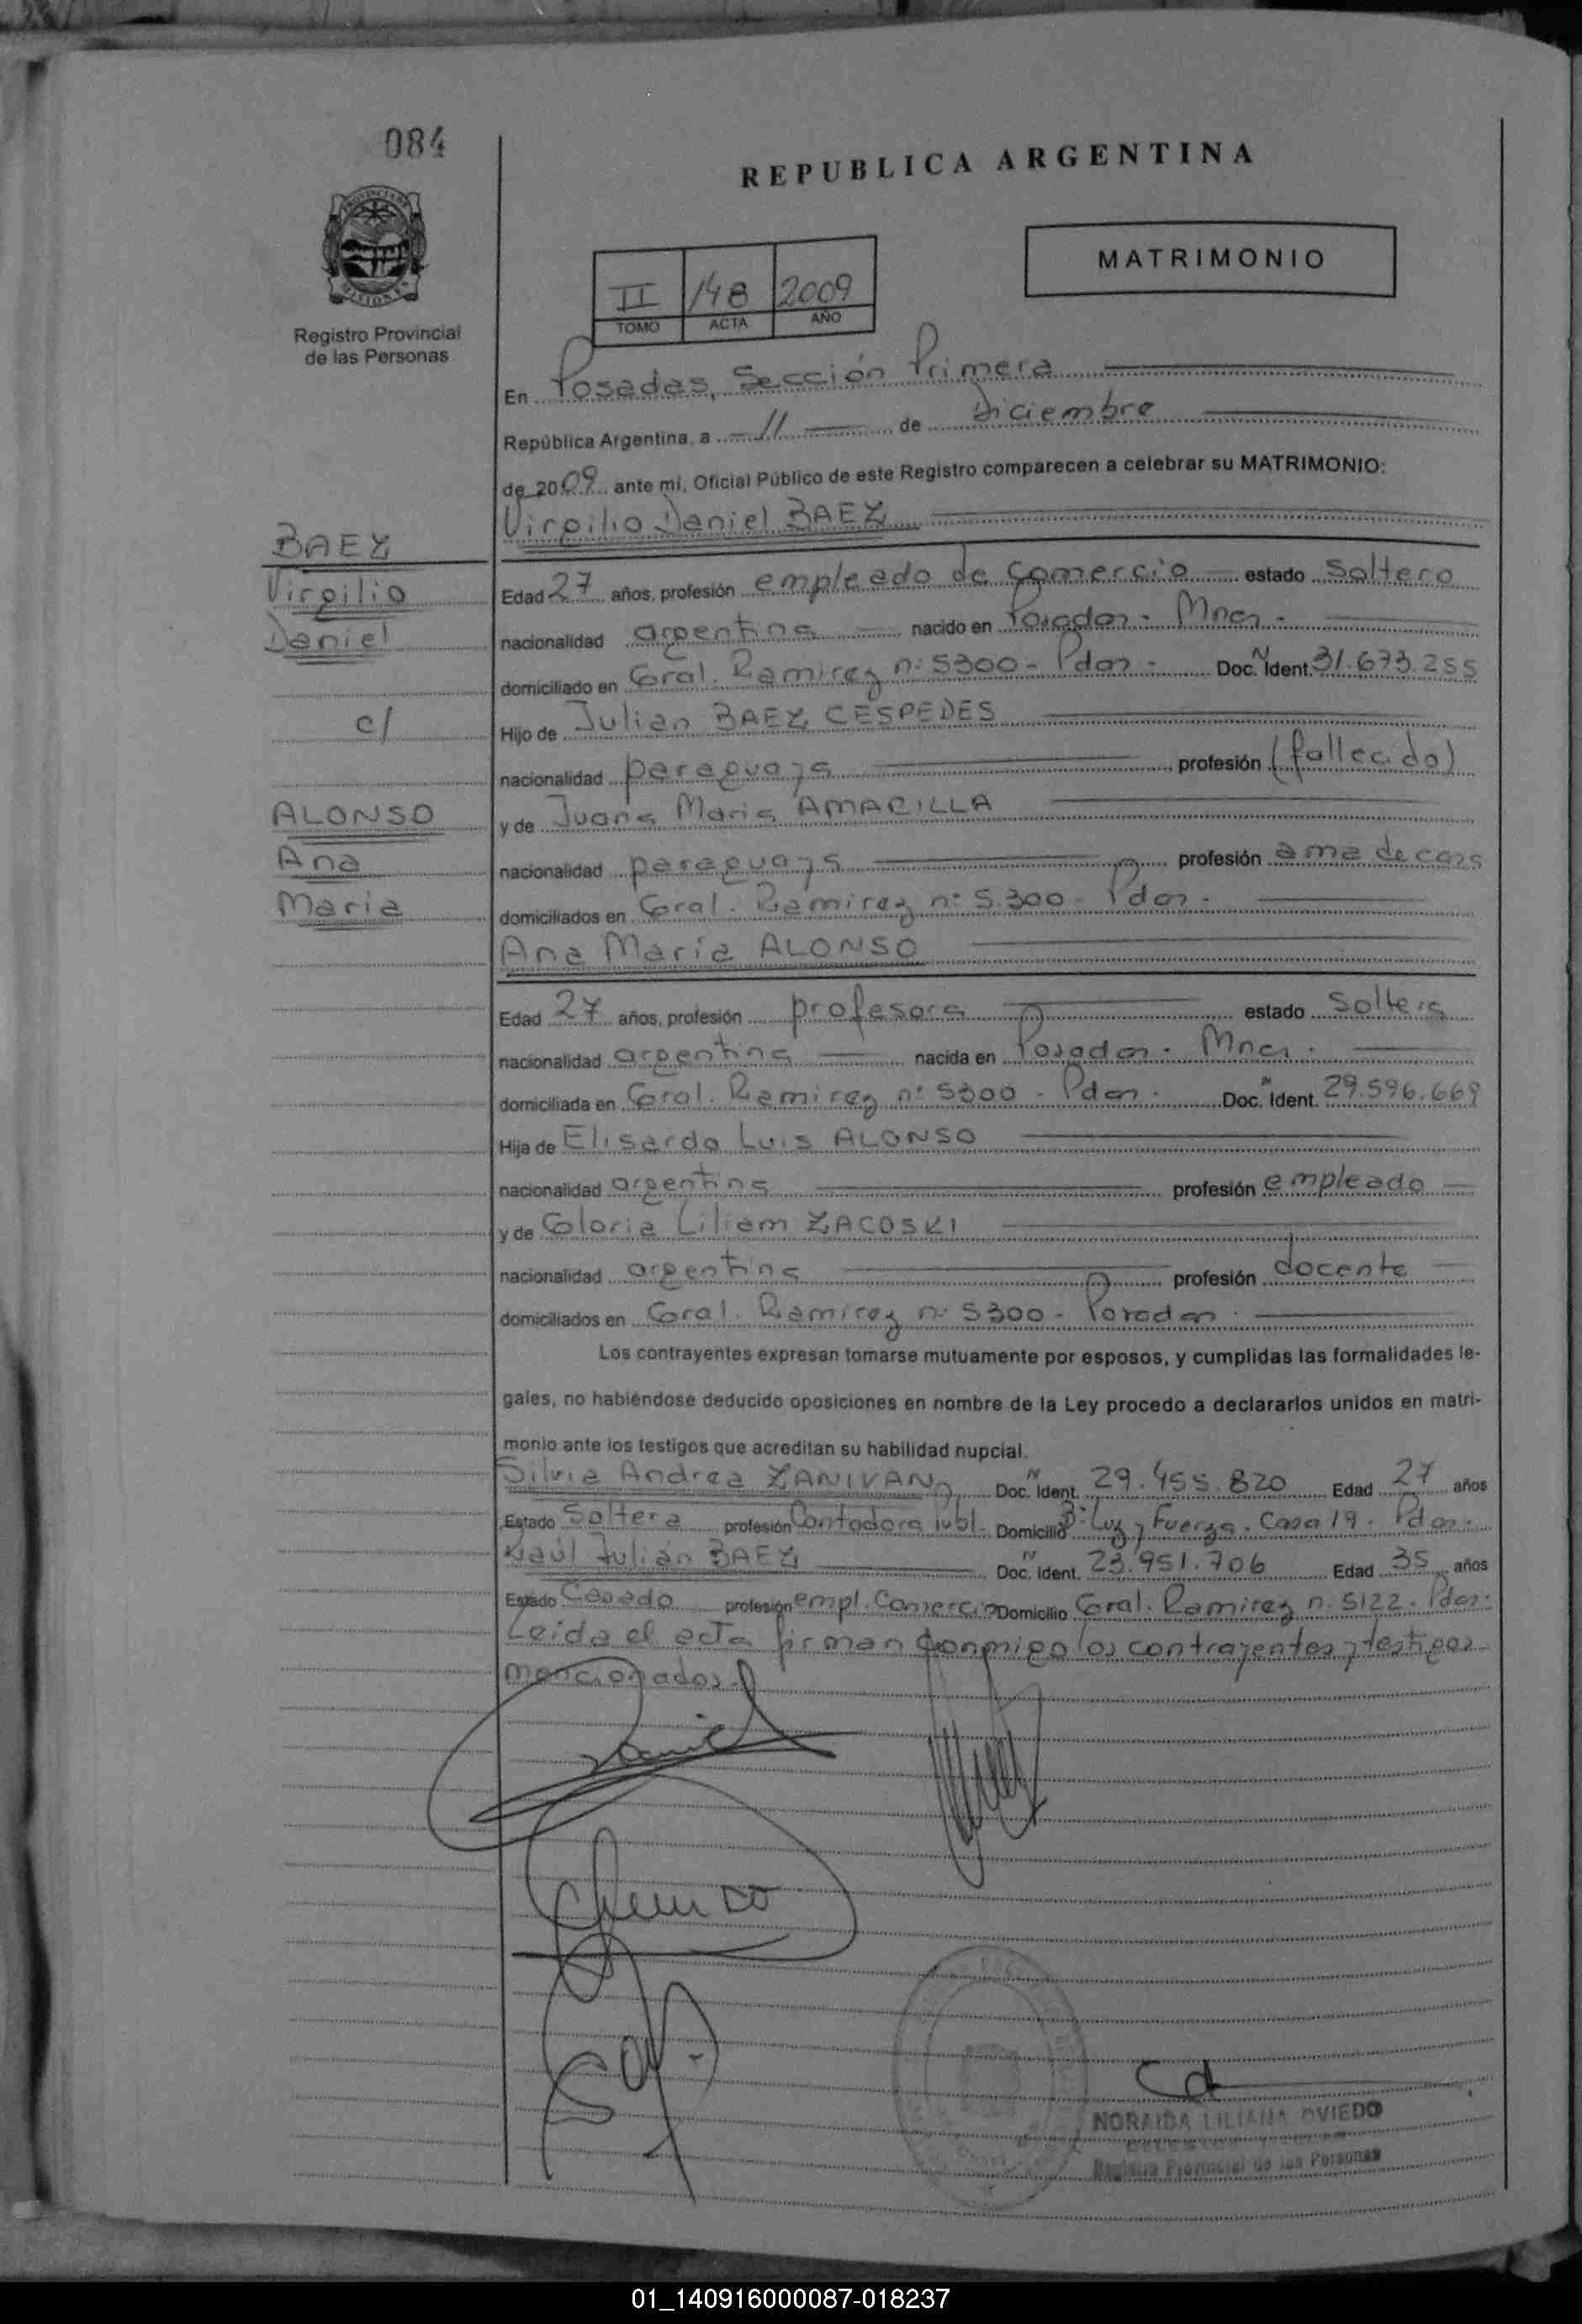 084
REPUBLICA ARGENTINA
MISIONES
Registro Provincial
de las Personas
II 148 2009
TOMO ACTA AÑO
MATRIMONIO
En Posadas, Sección Primera
República Argentina, a 11 de Diciembre
de 2009 ante mi, Oficial Público de este Registro comparecen a celebrar su MATRIMONIO:
Virgilio Daniel BAEZ
BAEZ
Virgilio
Daniel
c/
ALONSO
Ana
Maria
Edad 27 años, profesión empleado de Comercio estado Soltero
nacionalidad argentina nacido en Posadas - Mnes.
domiciliado en Gral. Ramirez n: 5300 - Pdas - Doc. N Ident. 31.673.255
Hijo de Julian BAEZ CESPEDES
nacionalidad paraguaya profesión (fallecido)
y de Juana Maria AMARILLA
nacionalidad paraguaya profesión ama de casa
domiciliados en Gral. Ramirez n: 5.300 - Pdas.
Ana María ALONSO
Edad 27 años, profesión profesora estado Soltera
nacionalidad argentina nacida en Posadas - Mnes.
domiciliada en Gral. Ramirez n: 5300 - Pdas. Doc. N Ident. 29.596.669
Hija de Elisardo Luis ALONSO
nacionalidad argentina profesión empleado
y de Gloria Liliam ZACOSKI
nacionalidad argentina profesión docente
domiciliados en Gral. Ramirez n: 5300 - Posadas.
Los contrayentes expresan tomarse mutuamente por esposos, y cumplidas las formalidades le-
gales, no habiéndose deducido oposiciones en nombre de la Ley procedo a declararlos unidos en matri-
monio ante los testigos que acreditan su habilidad nupcial.
Silvia Andrea ZANIVAN Doc. N Ident. 29.455.820 Edad 27 años
Estado Soltera profesión Contadora Publ. Domicilio B: Luz y Fuerza. Casa 19. Pdas.
Raúl Julián BAEZ Doc. N Ident. 23.951.706 Edad 35 años
Estado Casado profesión empl. Comercio Domicilio Gral. Ramirez n. 5122. Pdas.
Leida el acta firman conmigo los contrayentes y testigos
mencionados.
NORAIDA LILIANA OVIEDO
Registro Provincial de las Personas
01_140916000087-018237